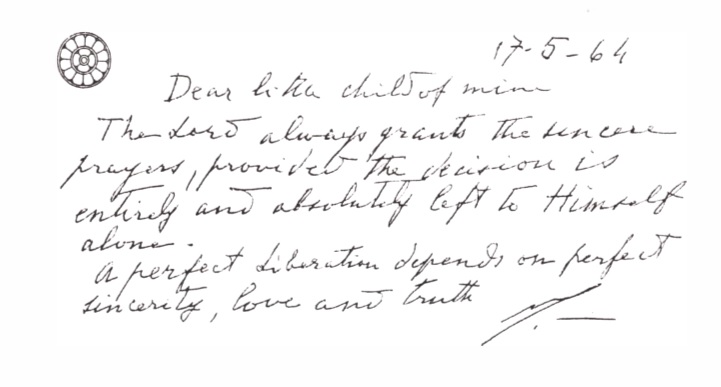 17-5-64
Dear little child of mine
The Lord always grants the sincere
prayers, provided the decision is
entirely and absolutely left to Himself
alone.
A perfect Liberation depends on perfect
sincerity, love and truth